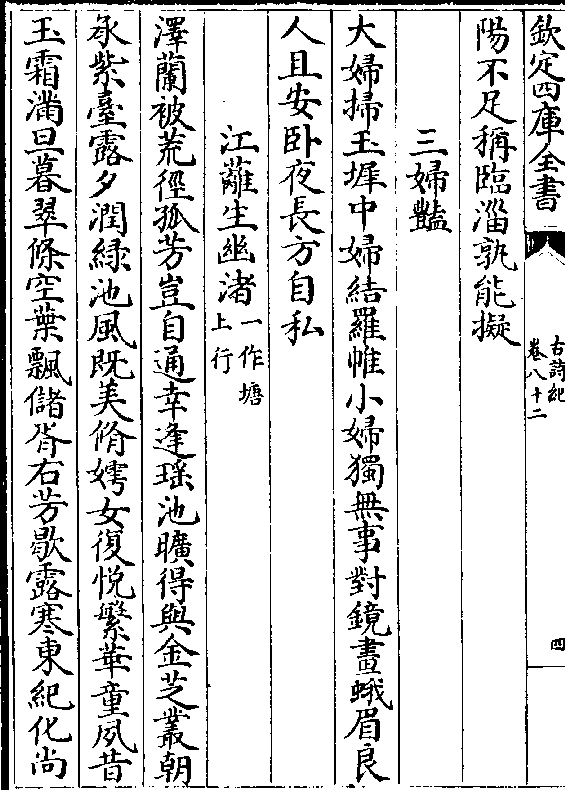 欽定四庫全書
古詩紀
卷八十二
四
陽不足稱臨淄孰能擬
三婦豔
大婦掃玉墀中婦結羅帷小婦獨無事對鏡畫蛾眉良
人且安卧夜長方自私
江蘺生幽渚一作塘上行
澤蘭被荒徑孤芳豈自通幸逢瑶池曠得與金芝叢朝
承紫臺露夕潤綠池風既美脩嫮女復悦繁華童夙昔
玉霜滿旦暮翠條空葉飄儲胥右芳歇露寒東紀化尚